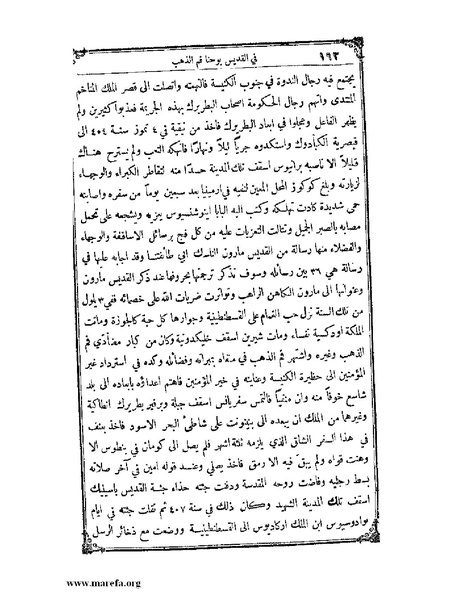 ١٩٣ في القديس يوحنا فم الذهب
يجتمع فيه رجال الندوة في جنوب الكنيسة فالتهمته واتصلت الى قصر الملك المتاخم
المنتدى واتهم رجال الحكومة اصحاب البطريرك بهذه الجريمة فعذبوا كثيرين ولم
يظهر الفاعل وعجلوا في ابعاد البطريرك فاخذ من نيقية في ٤ تموز سنة ٤٠٤ الى
قيصرية الكبادوك واستكدوه جريًا ليلًا ونهارًا فانهكه التعب ولم يسترح هناك
قليلًا الا ناصبه اسقف تلك المدينة حسدًا منه لتقاطر الكبراء والوجهاء
لزيارته وبلغ كوكوز المحل المعين لنفيه في ارمينيا بعد سبعين يومًا من سفره واصابته
حمى شديدة كادت تهلكه وكتب اليه البابا اينوشنسيوس يعزيه ويشجعه على تحمل
مصابه بالصبر الجميل وتتالت التعزيات عليه من كل فج برسائل الاساقفة والوجهاء
والفضلاء منها رسالة من القديس مارون الناسك ابي طائفتنا وقد اجابه عليها في
رسالة هي ٣٦ بين رسائله وسوف نذكر ترجمتها بحروفها عند ذكر القديس مارون
وعنوانها الى مارون الكاهن الراهب وتواترت ضربات الله على خصمائه ففي ٣٠ ايلول
من تلك السنة نزل حب الغمام على القسطنطينية وجوارها كل حبة كالجوزة وماتت
الملكة اودكسية نفساء ومات شيرين اسقف خليكدونية وكان من كبار مضادّي فم
الذهب وغيره واشتهر فم الذهب في منفاه بمبراته وفضائله وكده في استرداد غير
المؤمنين الى حظيرة الكنيسة وعنايته في خير المؤمنين فاهتم اعداؤه بابعاده الى بلد
شاسع خوفًا منه وان منفيًا فالتمس سفريانس اسقف جبلة وبرفير بطريرك انطاكية
وغيرهما من الملك ان يبعده الى بيتونت على شاطئ البحر الاسود فاخذ بعنف
في هذا السفر الشاق الذي يلزمه ثلاثة اشهر فلم يصل الى كومان في بنطوس الا
وهنت قواه ولم يبقَ فيه الا رمق فاخذ يصلي وعند قوله امين في آخر صلاته
بسط رجليه وفاضت روحه المقدسة ودفنت جثته حذاء جثة القديس باسيليك
اسقف تلك المدينة الشهيد وكان ذلك في سنة ٤٠٧ ثم نقلت جثته في ايام
توادوسيوس ابن الملك اركاديوس الى القسطنطينية ووضعت مع ذخائر الرسل
www.marefa.org